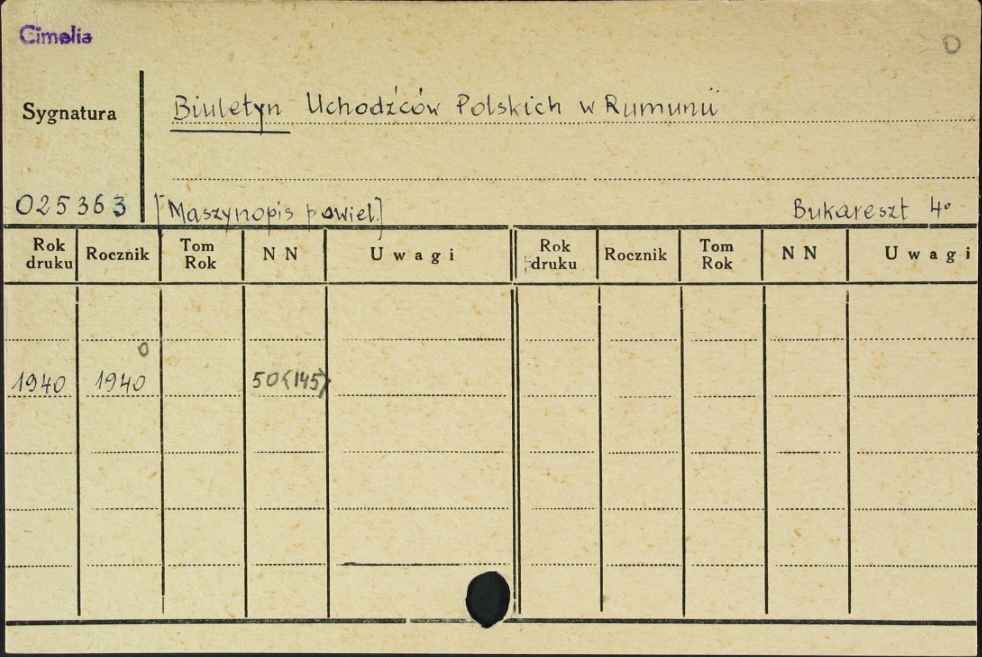 Cimelia
O
Sygnatura
Biuletyn Uchodźców Polskich w Rumunii
025363 [Maszynopis powiel.] Bukareszt 4°
Rok druku Rocznik Tom Rok NN Uwagi Rok druku Rocznik Tom Rok NN Uwagi
0
1940 1940 50(145)